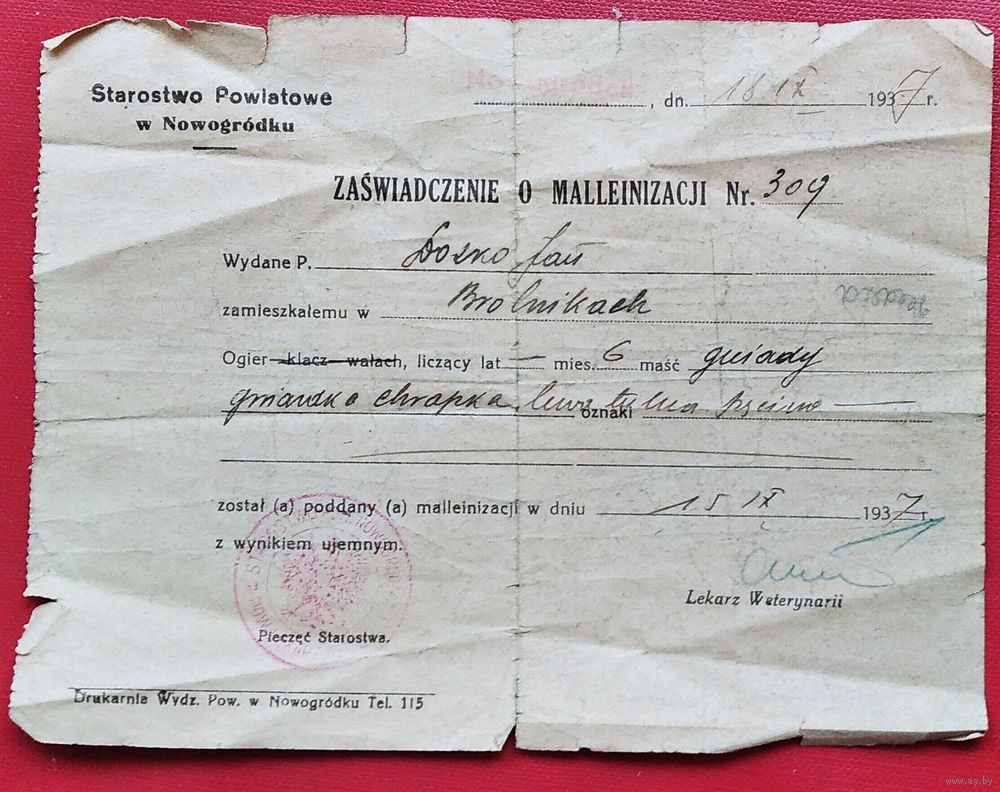 Starostwo Powiatowe
w Nowogródku
, dn. 18 IX 1937 r.
ZAŚWIADCZENIE O MALLEINIZACJI Nr. 309
Wydane P. Dozko Jan
zamieszkałemu w Brolnikach
Ogier klacz wałach, liczący lat — mies. 6 maść gniady
gwiazdka chrapka, lewa tylna oznaki
został (a) poddany (a) malleinizacji w dniu 15 IX 1937 r.
z wynikiem ujemnym.
Lekarz Weterynarii
Pieczęć Starostwa.
Drukarnia Wydz. Pow. w Nowogródku Tel. 115
www.ay.by